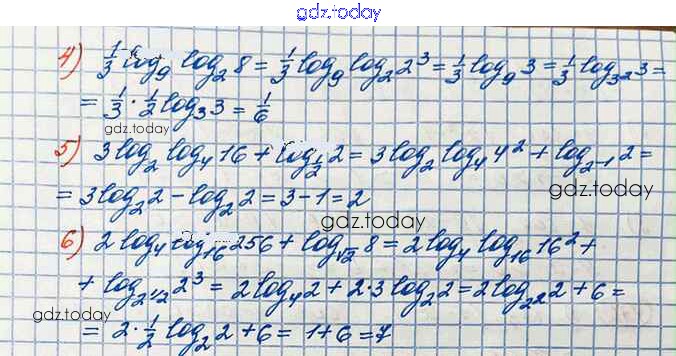 gdz.today
4) 1/3 log₉ log₂ 8 = 1/3 log₉ log₂ 2³ = 1/3 log₉ 3 = 1/3 log₃² 3 =
= 1/3 · 1/2 log₃ 3 = 1/6
gdz.today
5) 3 log₂ log₄ 16 + log_{1/2} 2 = 3 log₂ log₄ 4² + log_{2⁻¹} 2 =
= 3 log₂ 2 - log₂ 2 = 3 - 1 = 2
gdz.today
gdz.today
6) 2 log₄ log₁₆ 256 + log_{√2} 8 = 2 log₄ log₁₆ 16² +
+ log_{2^{1/2}} 2³ = 2 log₄ 2 + 2·3 log₂ 2 = 2 log_{2²} 2 + 6 =
gdz.today
= 2 · 1/2 log₂ 2 + 6 = 1 + 6 = 7